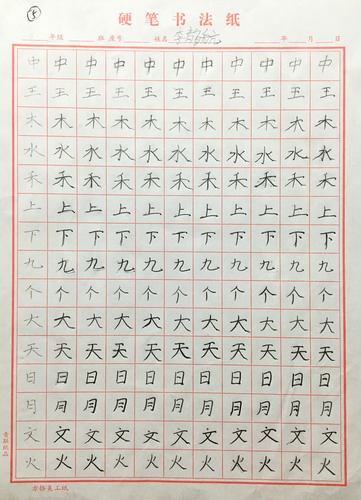 ⑤
硬笔书法纸
年级 班 座号 姓名 年 月 日
中 中 中 中 中 中 中 中 中 中 中
王 王 王 王 王 王 王 王 王 王 王
木 木 木 木 木 木 木 木 木 木 木
水 水 水 水 水 水 水 水 水 水 水
禾 禾 禾 禾 禾 禾 禾 禾 禾 禾 禾
上 上 上 上 上 上 上 上 上 上 上
下 下 下 下 下 下 下 下 下 下 下
九 九 九 九 九 九 九 九 九 九 九
个 个 个 个 个 个 个 个 个 个 个
大 大 大 大 大 大 大 大 大 大 大
天 天 天 天 天 天 天 天 天 天 天
日 日 日 日 日 日 日 日 日 日 日
月 月 月 月 月 月 月 月 月 月 月
文 文 文 文 文 文 文 文 文 文 文
火 火 火 火 火 火 火 火 火 火 火
方格美工纸